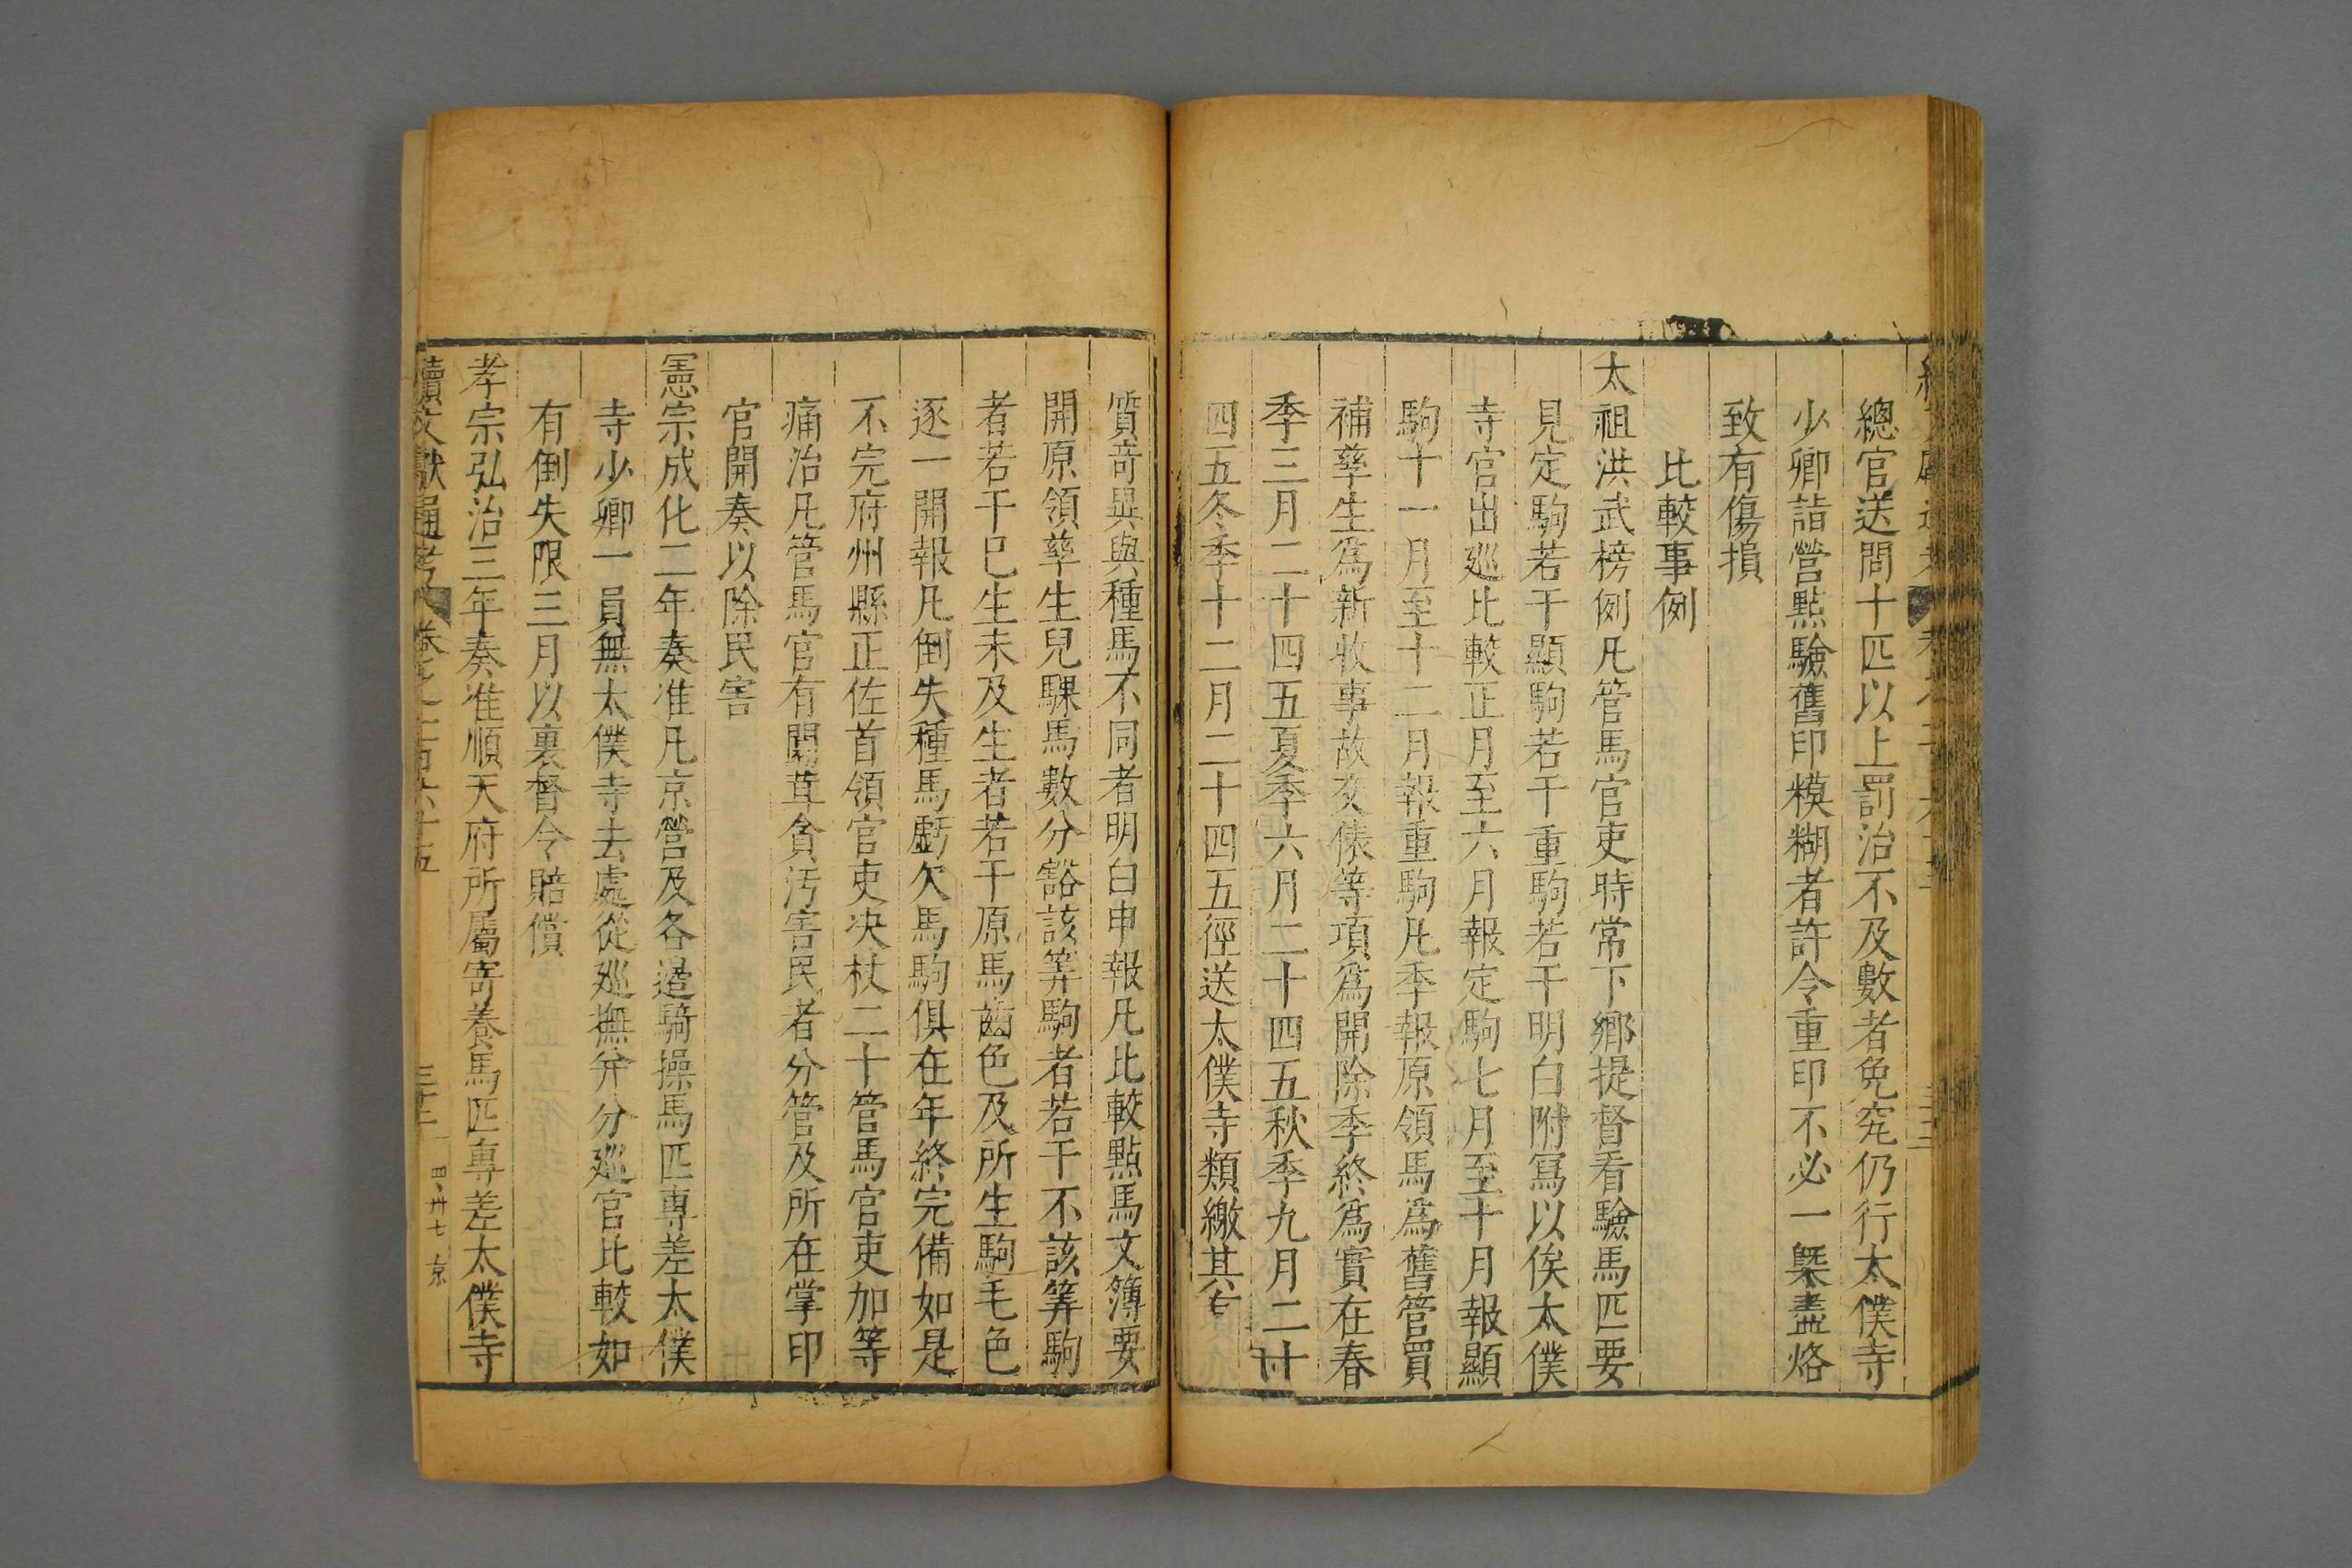 總官送問十匹以上罰治不及數者免究仍行太僕寺
少卿詣營點驗舊印糢糊者許令重印不必一槩盡烙
致有傷損
比較事例
太祖洪武榜例凡管馬官吏時常下鄉提督看驗馬匹要
見定駒若干顯駒若干重駒若干明白附冩以俟太僕
寺官出巡比較正月至六月報定駒七月至十月報顯
駒十一月至十二月報重駒凡季報原領馬爲舊管買
補孳生爲新收事故交俵等項爲開除季終爲實在春
季三月二十四五夏季六月二十四五秋季九月二十
四五冬季十二月二十四五徑送太僕寺類繳其
質奇異與種馬不同者明白申報凡比較點馬文簿要
開原領孳生兒騍馬數分豁該筭駒者若干不該筭駒
者若干已生未及生者若干原馬齒色及所生駒毛色
逐一開報凡倒失種馬虧欠馬駒俱在年終完備如是
不完府州縣正佐首領官吏决杖二十管馬官吏加等
痛治凡管馬官有闒茸貪汚害民者分管及所在掌印
官開奏以除民害
憲宗成化二年奏准凡京營及各邊騎操馬匹專差太僕
寺少卿一員無太僕寺去處從廵撫并分廵官比較如
有倒失限三月以裏督令賠償
孝宗弘治三年奏准順天府所屬寄養馬匹專差太僕寺
續文獻通考 卷之一百六十五 三十二
四、卅七 京